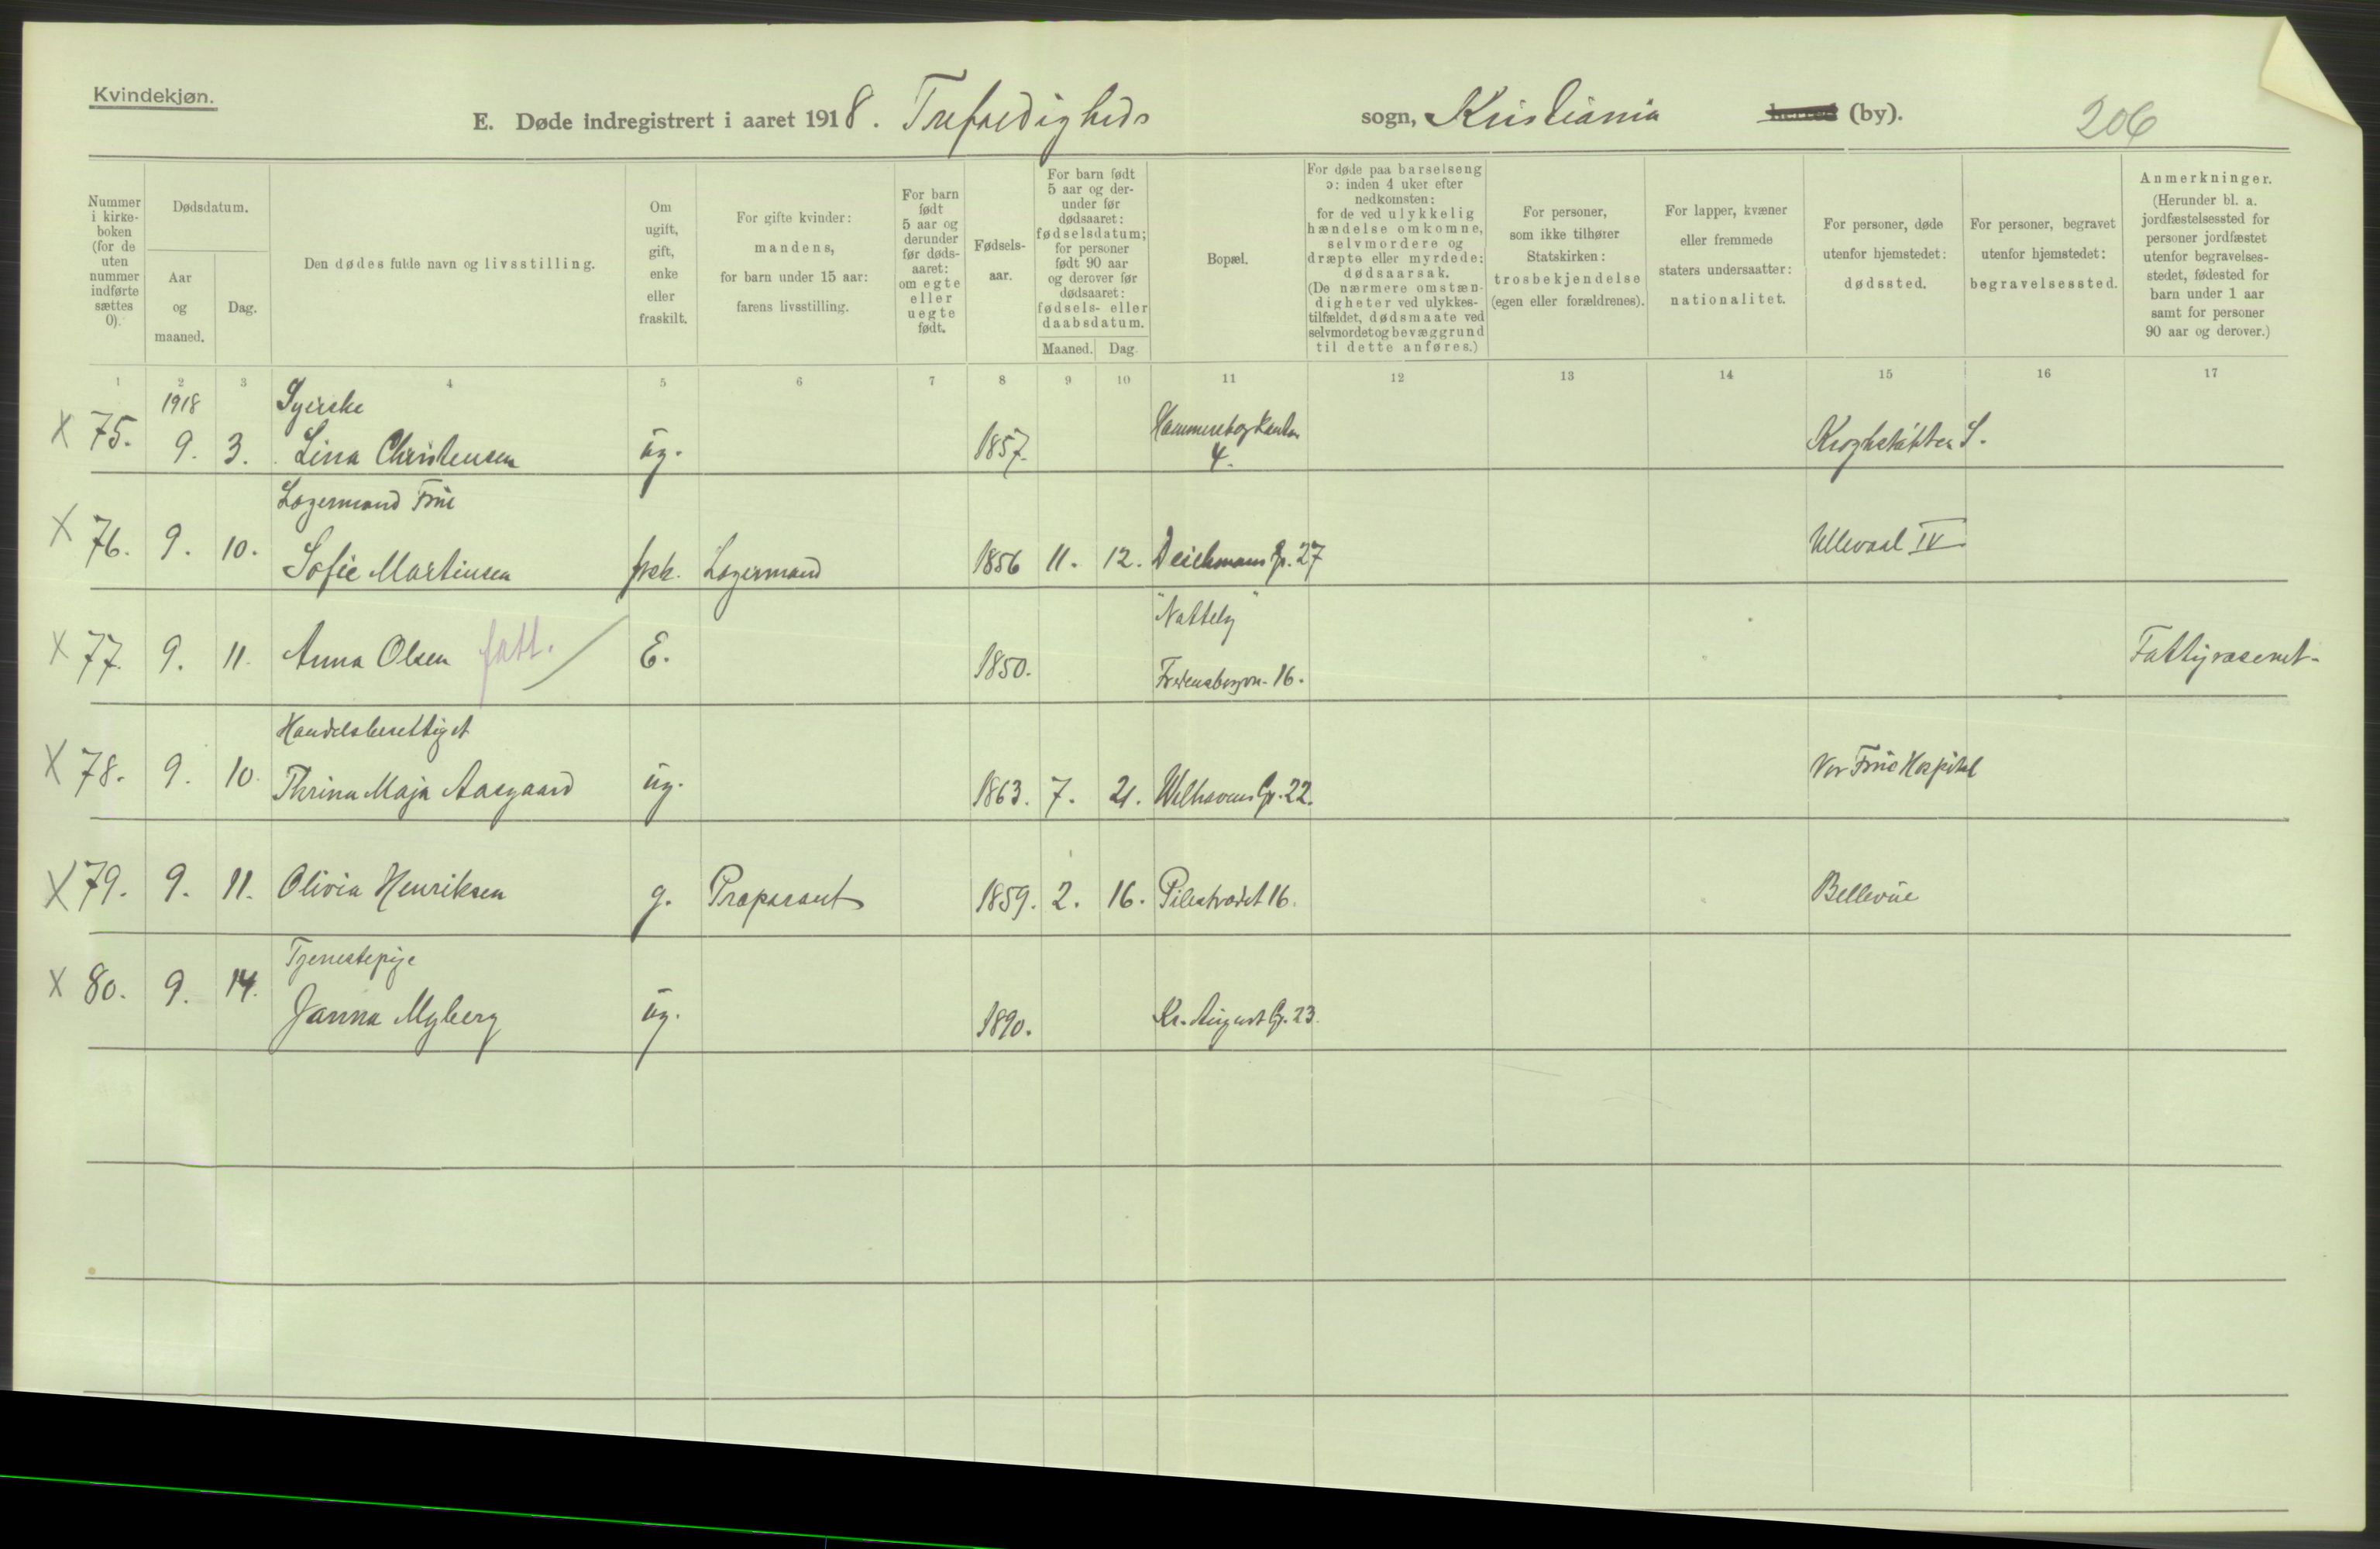 Kvindekjøn.
E. Døde indregistrert i aaret 1918. Trefoldigheds sogn, Kristiania herred (by).
206
Nummer
i kirke-
boken
(for de
uten
nummer
indførte
sættes
0).
Dødsdatum.
Aar
og
maaned.
Dag.
Den dødes fulde navn og livsstilling.
Om
ugift,
gift,
enke
eller
fraskilt.
For gifte kvinder:
mandens,
for barn under 15 aar:
farens livsstilling.
For barn
født
5 aar og
derunder
før døds-
aaret:
om egte
eller
uegte
født.
Fødsels-
aar.
For barn født
5 aar og der-
under før
dødsaaret:
fødselsdatum;
for personer
født 90 aar
og derover før
dødsaaret:
fødsels- eller
daabsdatum.
Maaned. Dag.
Bopæl.
For døde paa barselseng
ɔ: inden 4 uker efter
nedkomsten:
for de ved ulykkelig
hændelse omkomne,
selvmordere og
dræpte eller myrdede:
dødsaarsak.
(De nærmere omstæn-
digheter ved ulykkes-
tilfældet, dødsmaate ved
selvmordet og bevæggrund
til dette anføres.)
For personer,
som ikke tilhører
Statskirken:
trosbekjendelse
(egen eller forældrenes).
For lapper, kvæner
eller fremmede
staters undersaatter:
nationalitet.
For personer, døde
utenfor hjemstedet:
dødssted.
For personer, begravet
utenfor hjemstedet:
begravelsessted.
Anmerkninger.
(Herunder bl. a.
jordfæstelsessted for
personer jordfæstet
utenfor begravelses-
stedet, fødested for
barn under 1 aar
samt for personer
90 aar og derover.)
1 2 3 4 5 6 7 8 9 10 11 12 13 14 15 16 17
1918 Syerske Hammersborgkanten
X 75. 9. 3. Lina Christensen ug. 1857. 4. Kroghstøtten S.
Lagermand Frue
X 76. 9. 10. Sofie Martinsen frsk. Lagermand 1856 11. 12. Deichmans G. 27 Ullevaal IV
"Nattely"
X 77. 9. 11. Anna Olsen fatt. E. 1850. Fredensborgvn. 16. Fattigvæsenet.
Handelsberettiget
X 78. 9. 10. Thrina Maja Aasgaard ug. 1863. 7. 21. Welhavens G. 22. Vor Frue Hospital
X 79. 9. 11. Olivia Henriksen g. Præparant 1859. 2. 16. Pilestrædet 16. Bellevue
Tjenestepige
X 80. 9. 14. Janna Myberg ug. 1890. Kr. August G. 23.